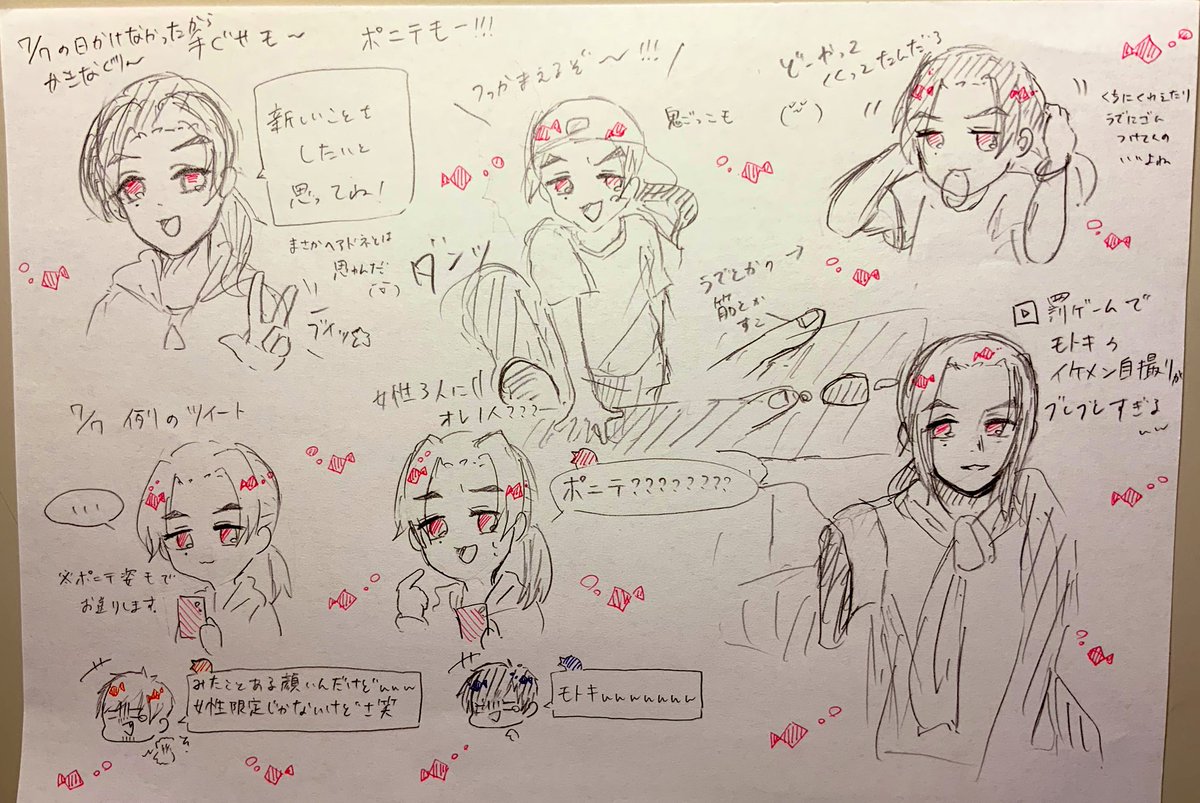 7/7の日かけなかったから
かきなぐり〜
ポニテモー!!!
新しいことを
したいと
思ってね!
まさかヘアドネとは
思わんだ
ブイッ
つかまえるぞ〜!!!
鬼ごっこも
ダンッ
どーやって
くくってたんだろ
くちにくわえたり
うでにゴム
つけてんの
いいよね
うでとかの
筋とか
すこ
罰ゲームで
モトキの
イケメン自撮りが
ブレブレすぎる
7/7 例のツイート
...
※ポニテ姿もで
お送りします
女性3人に
オレ1人???
ポニテ????????
みたことある顔いんだけどwww
女性限定じゃないけどさ笑
モトキwwwwwwww